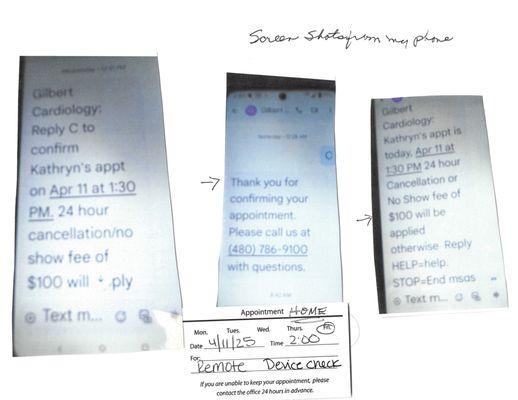 Screen Shots from my phone
Gilbert
Cardiology:
Reply C to
confirm
Kathryn's appt
on Apr 11 at 1:30
PM. 24 hour
cancellation/no
show fee of
$100 will
Text m...
Gilbert...
C
Thank you for
confirming your
appointment.
Please call us at
(480) 786-9100
with questions.
Gilbert
Cardiology:
Kathryn's appt is
today, Apr 11 at
1:30 PM 24 hour
Cancellation or
No Show fee of
$100 will be
applied
otherwise Reply
HELP=help.
STOP=End msgs
Text m...
Appointment HOME
Mon. Tues. Wed. Thurs. Fri.
Date 4/11/25 Time 2:00
For:
Remote Device check
If you are unable to keep your appointment, please
contact the office 24 hours in advance.